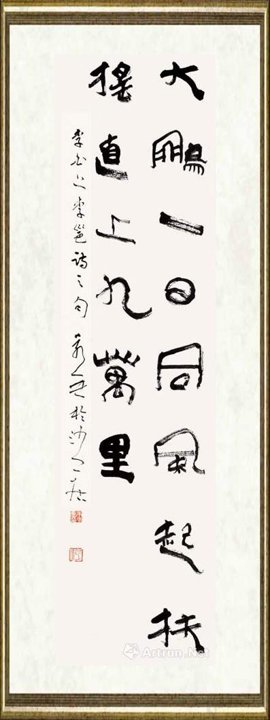 大鵬一日同風起扶
搖直上九萬里
李白上李邕詩之句
Artron.Net